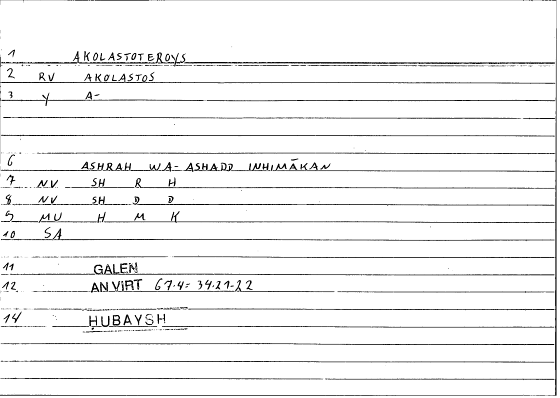 1 AKOLASTOTEROYS
2 RV AKOLASTOS
3 Y A-
6 ASHRAH WA- ASHADD INHIMĀKAN
7 NV SH R H
8 NV SH D D
9 MU H M K
10 SA
11 GALEN
12 AN VIRT 67.4= 34.21-22
14 ḤUBAYSH